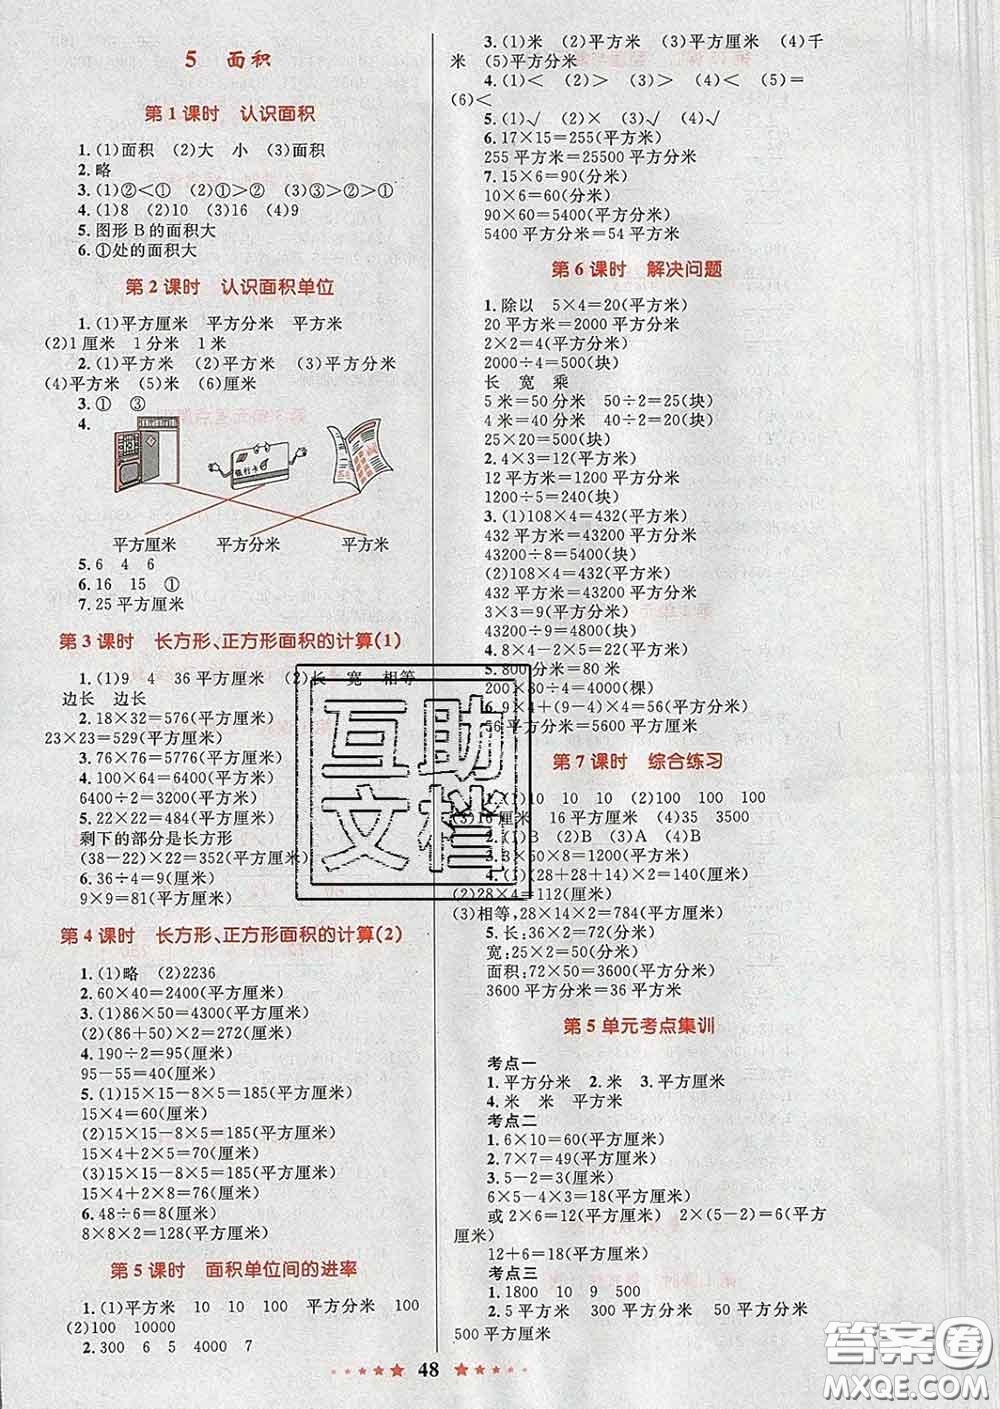 5 面积
第1课时 认识面积
1.(1)面积 (2)大 小 (3)面积
2.略
3.(1)②<① (2)①>② (3)③>②>①
4.(1)8 (2)10 (3)16 (4)9
5.图形B的面积大
6.①处的面积大
第2课时 认识面积单位
1.(1)平方厘米 平方分米 平方米
(2)1厘米 1分米 1米
2.(1)平方米 (2)平方米 (3)平方分米
(4)平方米 (5)米 (6)厘米
3.① ③
4.
银行卡
平方厘米 平方分米 平方米
5.6 4 6
6.16 15 ①
7.25平方厘米
第3课时 长方形、正方形面积的计算(1)
1.(1)9 4 36平方厘米 (2)长 宽 相等
边长 边长
2.18×32=576(平方厘米)
23×23=529(平方厘米)
3.76×76=5776(平方厘米)
4.100×64=6400(平方米)
6400÷2=3200(平方米)
5.22×22=484(平方厘米)
剩下的部分是长方形
(38-22)×22=352(平方厘米)
6.36÷4=9(厘米)
9×9=81(平方厘米)
第4课时 长方形、正方形面积的计算(2)
1.(1)略 (2)2236
2.60×40=2400(平方厘米)
3.(1)86×50=4300(平方厘米)
(2)(86+50)×2=272(厘米)
4.190÷2=95(厘米)
95-55=40(厘米)
5.(1)15×15-8×5=185(平方厘米)
15×4=60(厘米)
(2)15×15-8×5=185(平方厘米)
15×4+2×5=70(厘米)
(3)15×15-8×5=185(平方厘米)
15×4+2×8=76(厘米)
6.48÷6=8(厘米)
8×8×2=128(平方厘米)
第5课时 面积单位间的进率
1.(1)平方米 10 10 100 平方分米 100
(2)100 10000
2.300 6 5 4000 7
3.(1)米 (2)平方米 (3)平方厘米 (4)千
米 (5)平方分米
4.(1)< (2)> (3)> (4)< (5)=
(6)<
5.(1)√ (2)× (3)√ (4)√
6.17×15=255(平方米)
255平方米=25500平方分米
7.15×6=90(分米)
10×6=60(分米)
90×60=5400(平方分米)
5400平方分米=54平方米
第6课时 解决问题
1.除以 5×4=20(平方米)
20平方米=2000平方分米
2×2=4(平方分米)
2000÷4=500(块)
长 宽 乘
5米=50分米 50÷2=25(块)
4米=40分米 40÷2=20(块)
25×20=500(块)
2.4×3=12(平方米)
12平方米=1200平方分米
1200÷5=240(块)
3.(1)108×4=432(平方米)
432平方米=43200平方分米
43200÷8=5400(块)
(2)108×4=432(平方米)
432平方米=43200平方分米
3×3=9(平方分米)
43200÷9=4800(块)
4.8×4-2×5=22(平方米)
5.800分米=80米
200×80÷4=4000(棵)
6.9×4+(9-4)×4=56(平方分米)
56平方分米=5600平方厘米
第7课时 综合练习
1.(1)10 10 10 (2)100 100 100
(3)16厘米 16平方厘米 (4)35 3500
2.(1)B (2)B (3)A (4)B
3.3×50×8=1200(平方米)
4.(1)(28+28+14)×2=140(厘米)
(2)28×4=112(厘米)
(3)相等,28×14×2=784(平方厘米)
5.长:36×2=72(分米)
宽:25×2=50(分米)
面积:72×50=3600(平方分米)
3600平方分米=36平方米
第5单元考点集训
考点一
1.平方分米 2.米 3.平方厘米
4.米 米 平方米
考点二
1.6×10=60(平方分米)
2.7×7=49(平方厘米)
3.5-2=3(厘米)
6×5-4×3=18(平方厘米)
或2×6=12(平方厘米) 2×(5-2)=6(平方
厘米)
12+6=18(平方厘米)
考点三
1.1800 10 9 500
2.5平方分米 300平方分米 50平方分米
500平方厘米
48
互助
文档
答案圈
MXQE.COM